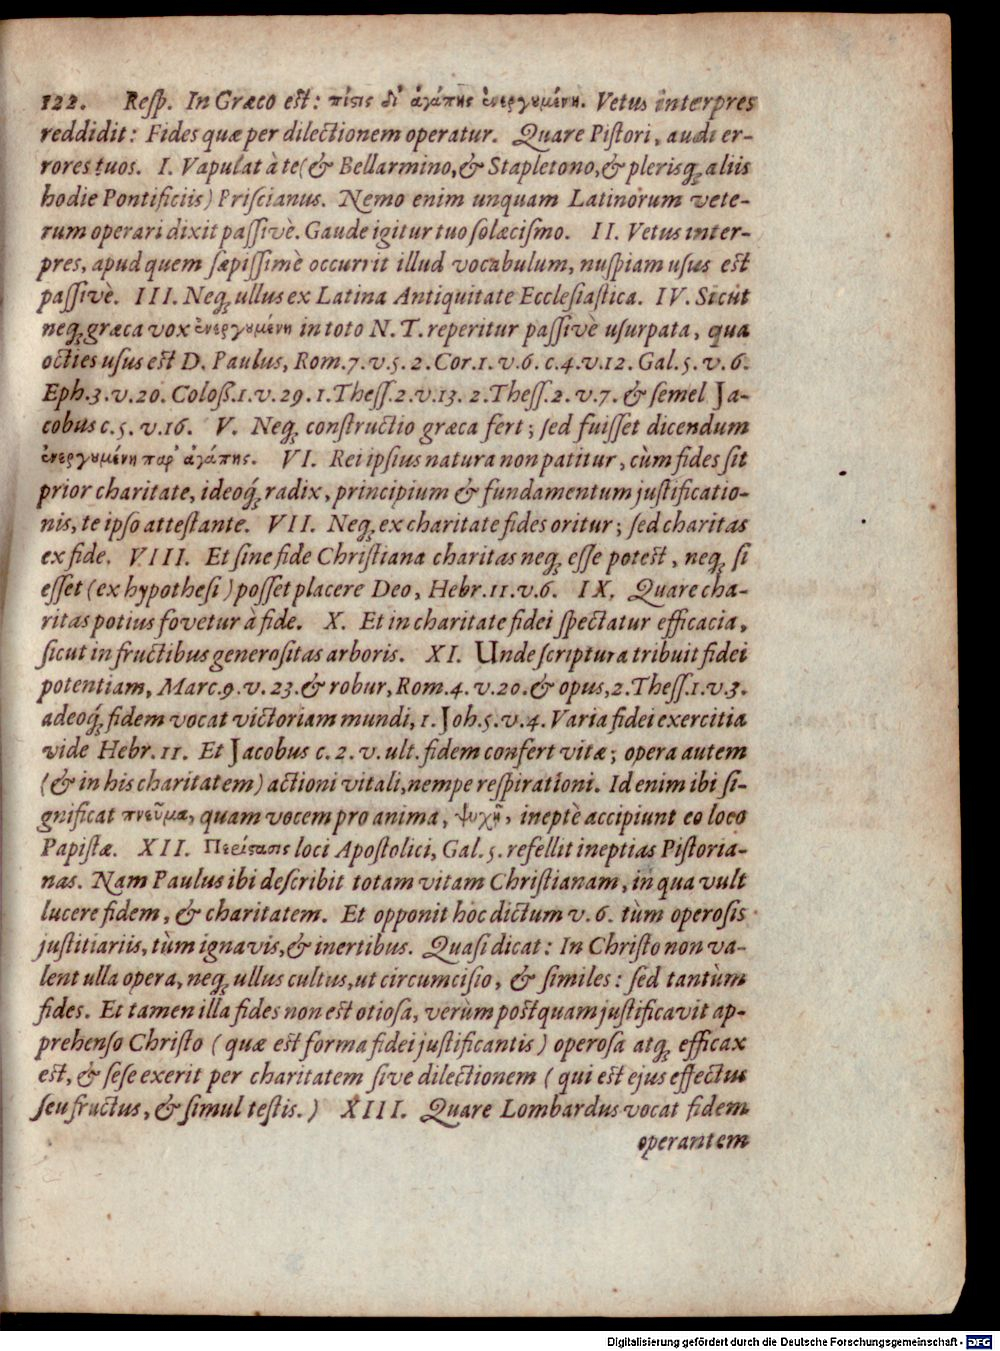 122. Resp. In Græco est: πίςις δι' ἀγάπης ἐνεργουμένη. Vetus interpres
reddidit: Fides quæ per dilectionem operatur. Quare Pistori, audi er-
rores tuos. I. Vapulat à te (& Bellarmino, & Stapletono, & plerisq; aliis
hodie Pontificiis) Priscianus. Nemo enim unquam Latinorum vete-
rum operari dixit passivè. Gaude igitur tuo solœcismo. II. Vetus inter-
pres, apud quem sæpissimè occurrit illud vocabulum, nuspiam usus est
passivè. III. Neq; ullus ex Latina Antiquitate Ecclesiastica. IV. Sicut
neq; græca vox ἐνεργουμένη in toto N. T. reperitur passivè usurpata, qua
octies usus est D. Paulus, Rom.7.v.5. 2.Cor.1.v.6. c.4.v.12. Gal.5.v.6.
Eph.3.v.20. Coloß.1.v.29. 1.Thess.2.v.13. 2.Thess.2.v.7. & semel Ja-
cobus c.5.v.16. V. Neq; constructio græca fert; sed fuisset dicendum
ἐνεργουμένη παρ' ἀγάπης. VI. Rei ipsius natura non patitur, cùm fides sit
prior charitate, ideoq́; radix, principium & fundamentum justificatio-
nis, te ipso attestante. VII. Neq; ex charitate fides oritur; sed charitas
ex fide. VIII. Et sine fide Christiana charitas neq; esse potest, neq; si
esset (ex hypothesi) posset placere Deo, Hebr.11.v.6. IX. Quare cha-
ritas potius fovetur à fide. X. Et in charitate fidei spectatur efficacia,
sicut in fructibus generositas arboris. XI. Unde scriptura tribuit fidei
potentiam, Marc.9.v.23. & robur, Rom.4.v.20. & opus, 2.Thess.1.v.3.
adeoq́; fidem vocat victoriam mundi, 1.Joh.5.v.4. Varia fidei exercitia
vide Hebr.11. Et Jacobus c.2.v.ult. fidem confert vitæ; opera autem
(& in his charitatem) actioni vitali, nempe respirationi. Id enim ibi si-
gnificat πνεῦμα, quam vocem pro anima, ψυχῆ, ineptè accipiunt eo loco
Papistæ. XII. Περίστασις loci Apostolici, Gal.5. refellit ineptias Pistoria-
nas. Nam Paulus ibi describit totam vitam Christianam, in qua vult
lucere fidem, & charitatem. Et opponit hoc dictum v.6. tùm operosis
justitiariis, tùm ignavis, & inertibus. Quasi dicat: In Christo non va-
lent ulla opera, neq; ullus cultus, ut circumcisio, & similes: sed tantùm
fides. Et tamen illa fides non est otiosa, verùm postquam justificavit ap-
prehenso Christo (quæ est forma fidei justificantis) operosa atq; efficax
est, & sese exerit per charitatem sive dilectionem (qui est ejus effectus
seu fructus, & simul testis.) XIII. Quare Lombardus vocat fidem
operantem
Digitalisierung gefördert durch die Deutsche Forschungsgemeinschaft - DFG